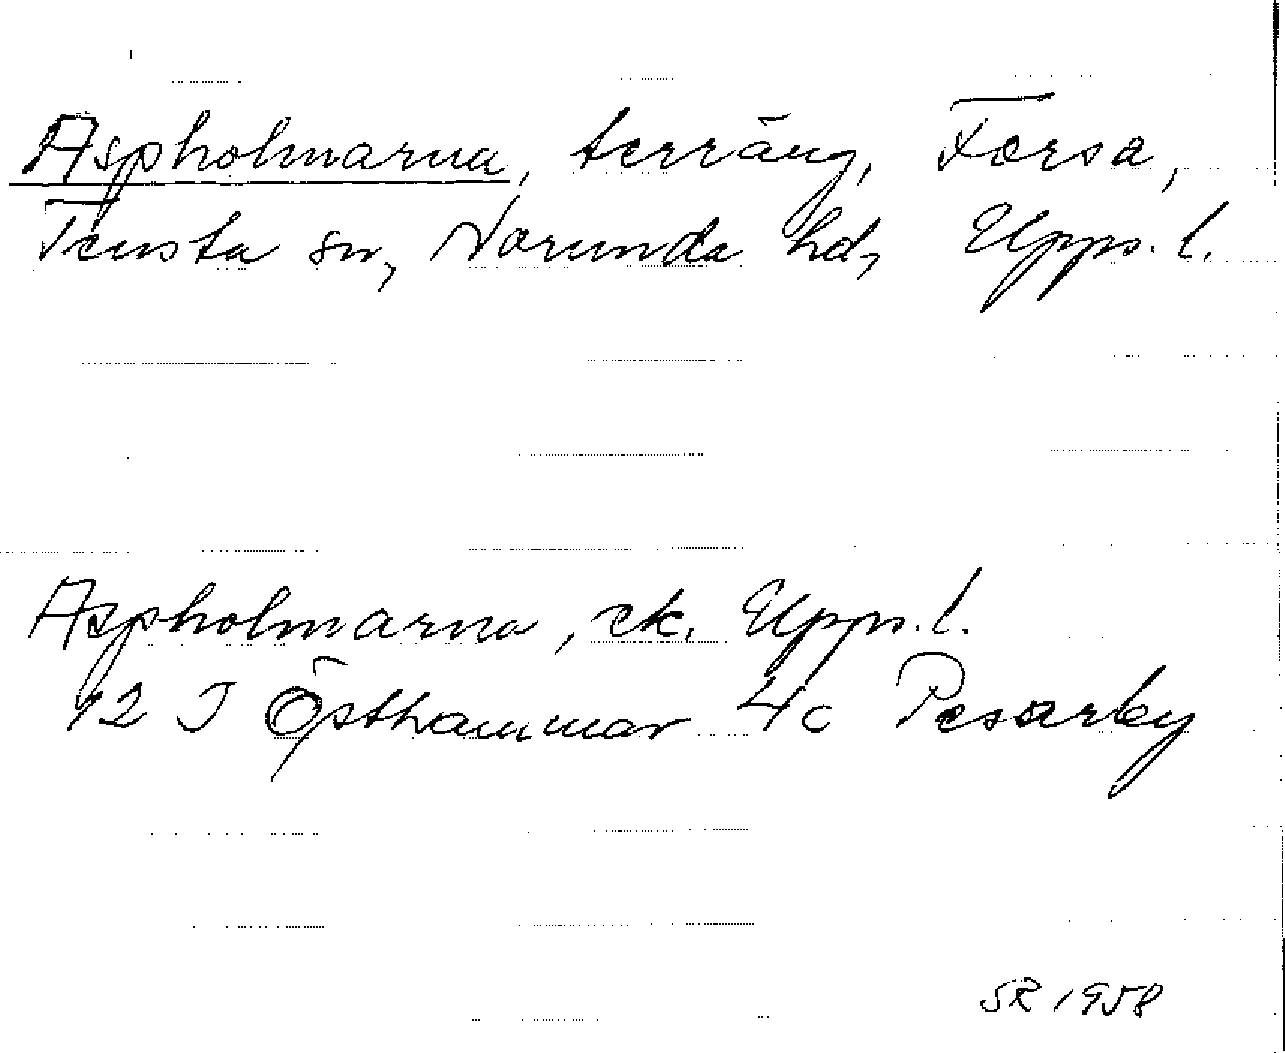 Aspholmarna, terräng, Forsa,
Tensta sn, Norunda hd, Upps. l.
Aspholmarna, ek. Upps. l.
12 I Östhammar 4c Pesarby
SR 1958